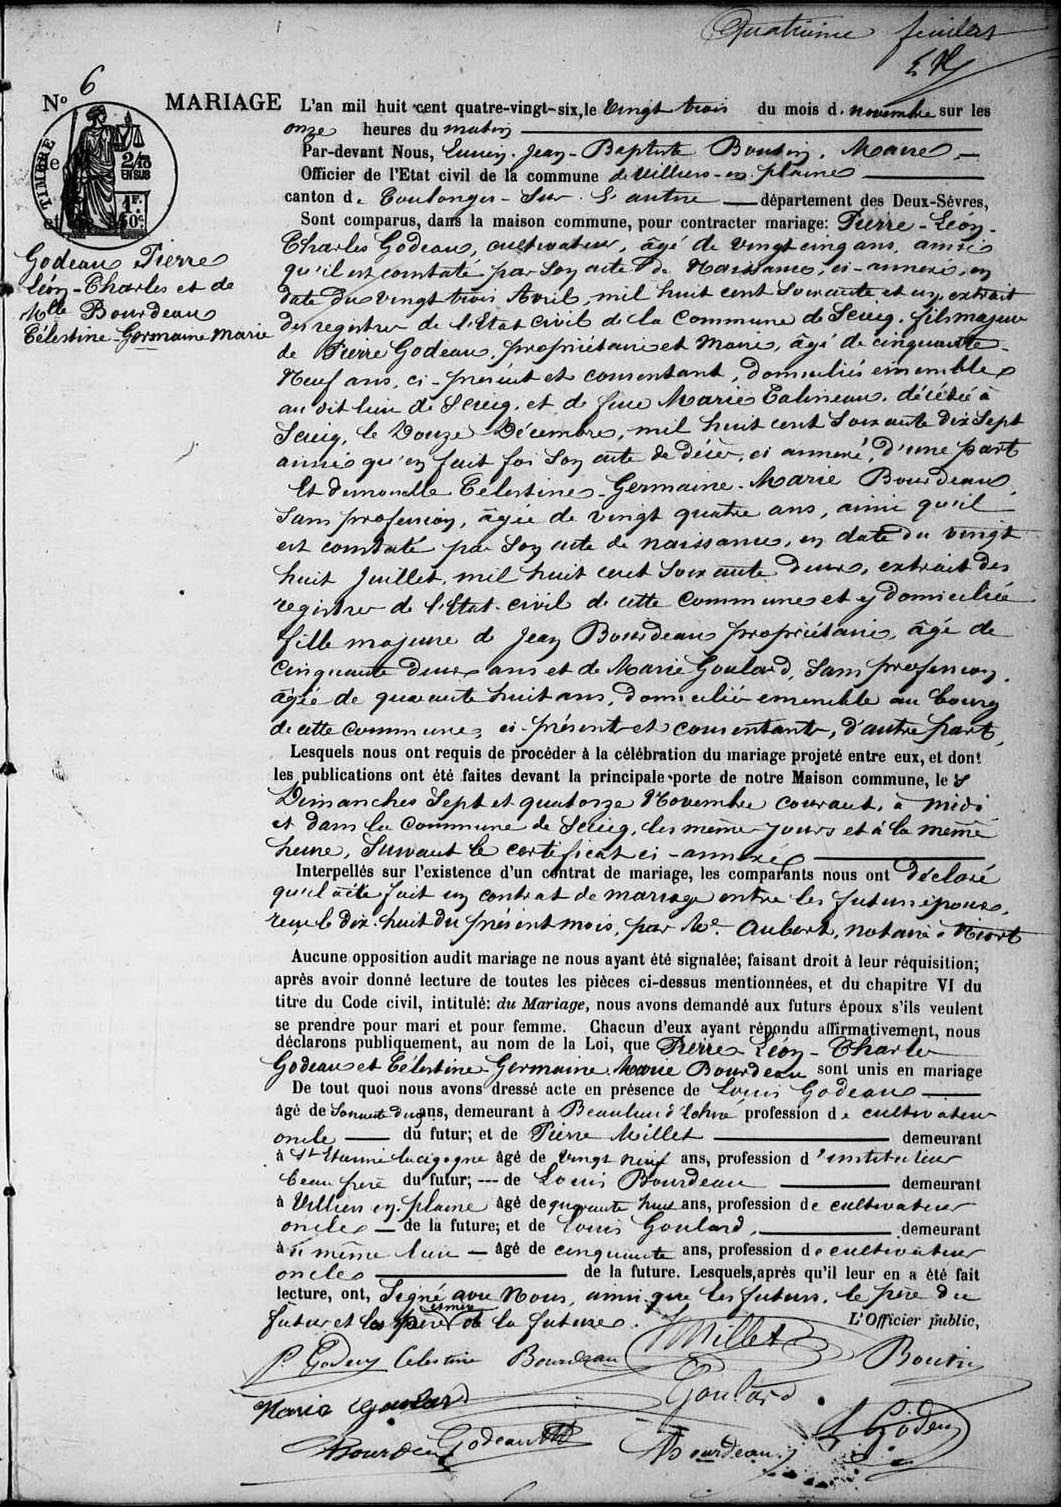 Quatrième feuillet
No 6
MARIAGE
TIMBRE
2/10
EN SUS
1F.
50c.
Godeau Pierre
Léon-Charles et de
Mlle Bourdeau
Célestine-Germaine Marie
L'an mil huit cent quatre-vingt-six, le vingt trois du mois d. novembre sur les
onze heures du matin
Par-devant Nous, Lucien-Jean-Baptiste Boutin, Maire
Officier de l'Etat civil de la commune de Villiers-en-plaine
canton de Coulonges-Sur-L'autize département des Deux-Sèvres,
Sont comparus, dans la maison commune, pour contracter mariage: Pierre-Léon-
Charles Godeau, cultivateur, âgé de vingt cinq ans, ainsi
qu'il est constaté par Son acte de Naissance, ci-annexé, en
date du vingt trois Avril, mil huit cent Soixante et un, extrait
des registres de l'Etat civil de la Commune de Sciecq, fils majeur
de Pierre Godeau, propriétaire et Maire, âgé de cinquante-
Neuf ans, ci-présent et consentant, domiciliés ensembles
au dit lieu de Sciecq, et de feue Marie Talineau, décédée à
Sciecq, le Douze Décembre, mil huit cent Soixante dix Sept
ainsi qu'en fait foi Son acte de décès, ci annexé, d'une part
Et demoiselle Célestine-Germaine-Marie Bourdeau,
Sans profession, âgée de vingt quatre ans, ainsi qu'il
est constaté par Son acte de naissance, en date du vingt
huit Juillet, mil huit cent Soixante deux, extrait des
registres de l'Etat-civil de cette Commune et y domiciliée
fille majeure de Jean Bourdeau propriétaire, âgé de
Cinquante deux ans et de Marie Goulard, Sans profession,
âgée de quarante huit ans, domiciliés ensemble au bourg
de cette Commune, ci-présents et consentants, d'autre part,
Lesquels nous ont requis de procéder à la célébration du mariage projeté entre eux, et dont
les publications ont été faites devant la principale porte de notre Maison commune, le s
Dimanches Sept et quatorze Novembre courant, à midi
et dans la Commune de Sciecq, les même Jours et à la même
heure, Suivant le certificat ci-annexé
Interpellés sur l'existence d'un contrat de mariage, les comparants nous ont déclaré
qu'il a été fait un contrat de mariage entre les futurs époux,
reçu le dix-huit du présent mois, par Me Aubert, notaire à Niort
Aucune opposition audit mariage ne nous ayant été signalée; faisant droit à leur réquisition;
après avoir donné lecture de toutes les pièces ci-dessus mentionnées, et du chapitre VI du
titre du Code civil, intitulé: du Mariage, nous avons demandé aux futurs époux s'ils veulent
se prendre pour mari et pour femme. Chacun d'eux ayant répondu affirmativement, nous
déclarons publiquement, au nom de la Loi, que Pierre-Léon-Charles
Godeau et Célestine-Germaine Marie Bourdeau sont unis en mariage
De tout quoi nous avons dressé acte en présence de Louis Godeau
âgé de ans, demeurant à Beaulieu profession de cultivateur
oncle du futur; et de Pierre Millet demeurant
à St Etienne lacigogne âgé de vingt neuf ans, profession d'instituteur
beau frère du futur; --- de Louis Bourdeau demeurant
à Villiers en-plaine âgé de quarante huit ans, profession de cultivateur
oncle de la future; et de Louis Goulard, demeurant
à même lieu âgé de cinquante ans, profession de cultivateur
oncle de la future. Lesquels, après qu'il leur en a été fait
lecture, ont, Signé avec Nous, ainsi que les futurs, le père du
futur et les père et mère de la future.
L'Officier public,
P Godeau Célestine Bourdeau Millet Boutin
Maria Goulard Goulard
Bourdeau Godeau Bourdeau L Godeau